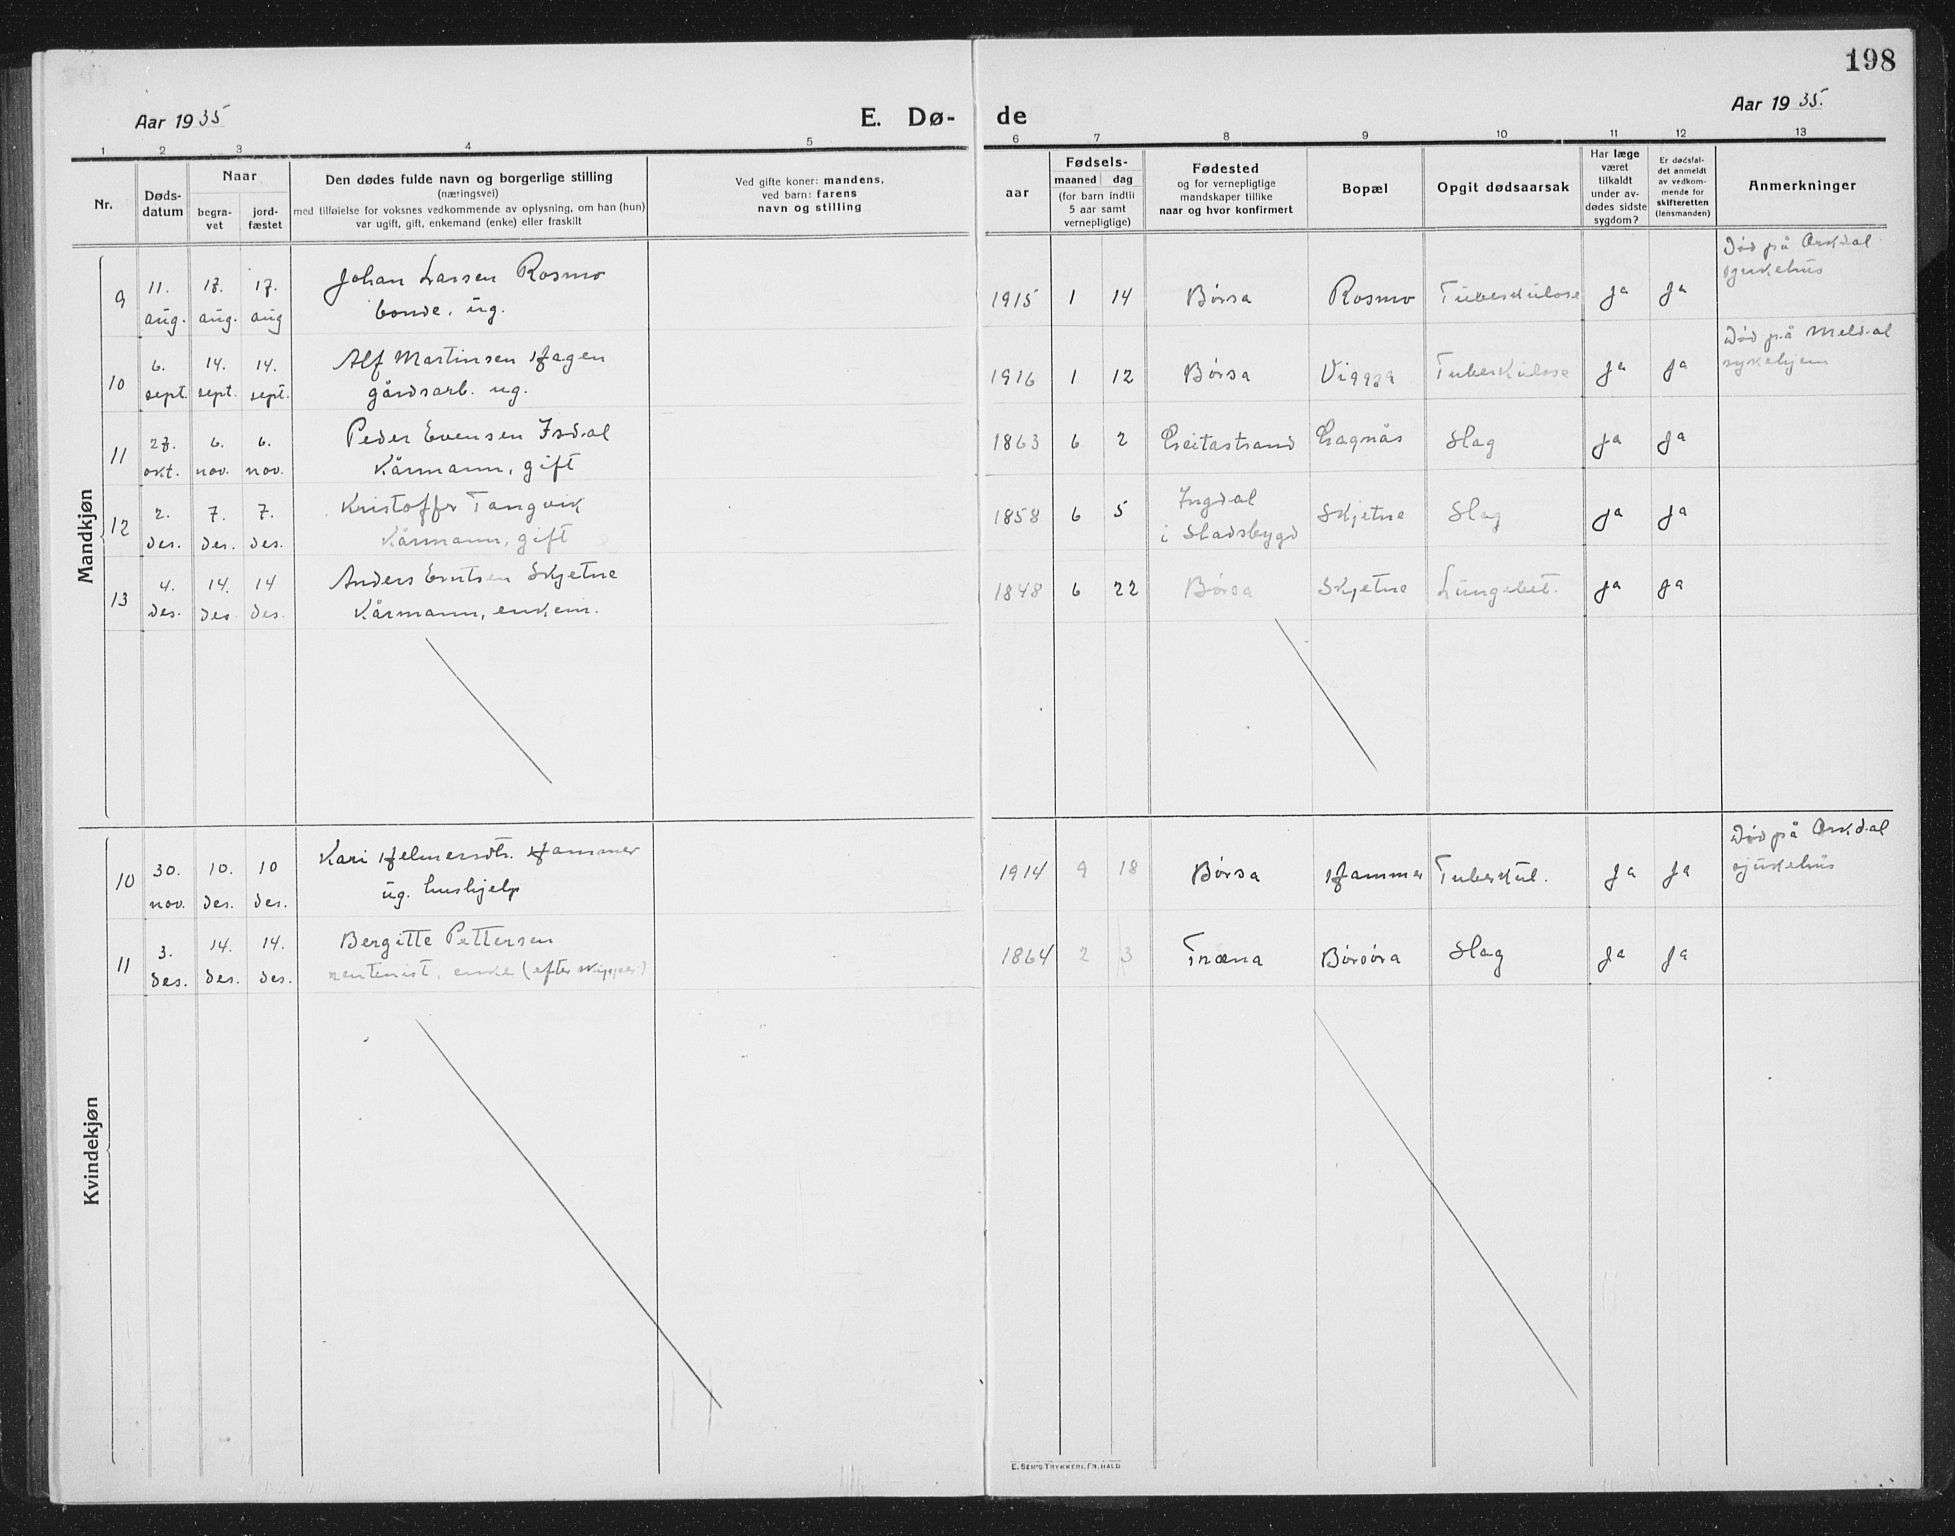 198
Aar 1935
E. Dø-
de
Aar 1935.
1 2 3 4 5 6 7 8 9 10 11 12 13
Nr.
Døds-
datum
Naar
begra-
vet
jord-
fæstet
Den dødes fulde navn og borgerlige stilling
(næringsvei)
med tilføielse for voksnes vedkommende av oplysning, om han (hun)
var ugift, gift, enkemand (enke) eller fraskilt
Ved gifte koner: mandens,
ved barn: farens
navn og stilling
aar
Fødsels-
maaned dag
(for barn indtil
5 aar samt
vernepligtige)
Fødested
og for vernepligtige
mandskaper tillike
naar og hvor konfirmert
Bopæl
Opgit dødsaarsak
Har læge
været
tilkaldt
under av-
dødes sidste
sygdom?
Er dødsfal-
det anmeldt
av vedkom-
mende for
skifteretten
(lensmanden)
Anmerkninger
Mandkjøn
9 11. 17. 17. Johan Larsen Rosmo 1915 1 14 Børsa Rosmo Tuberkulose ja ja Død på Orkdal
aug. aug. aug bonde, ug. sjukehus
10 6. 14. 14. Alf Martinsen Hagen 1916 1 12 Børsa Viggja Tuberkulose ja ja Død på Meldal
sept. sept. sept. gårdsarb. ug. sykehjem
11 27. 6. 6. Peder Evensen Isdal 1863 6 2 Geitastrand Gagnås Slag ja ja
okt. nov. nov. Kårmann, gift
12 2. 7. 7. Kristoffer Tangvik 1858 6 5 Ingdal Skjetne Slag ja ja
des. des. des. Kårmann, gift i Stadsbygd
13 4. 14. 14 Anders Erntsen Skjetne 1848 6 22 Børsa Skjetne Lungebet. ja ja
des. des des. Kårmann, enkem.
Kvindekjøn
10 30. 10. 10 Kari Helmersdtr. Hammer 1914 9 18 Børsa Hammer Tuberkul. ja ja Død på Orkdal
nov. des. des. ug. hushjelp sjukehus
11 3. 14. 14. Bergitte Pettersen 1864 2 3 Træna Børsøra Slag ja ja
des. des. des. rentenist, enke (efter skipper)
E. SEM'S TRYKKERI, FR.HALD